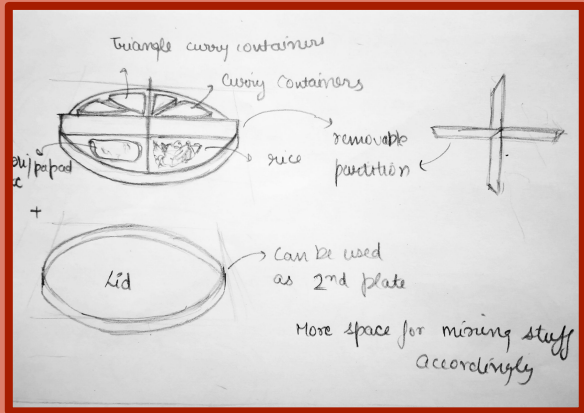 Triangle curry containers
Curry Containers
removable
partition
rice
/papad
+
Lid
Can be used
as 2nd plate
More space for mixing stuff
accordingly